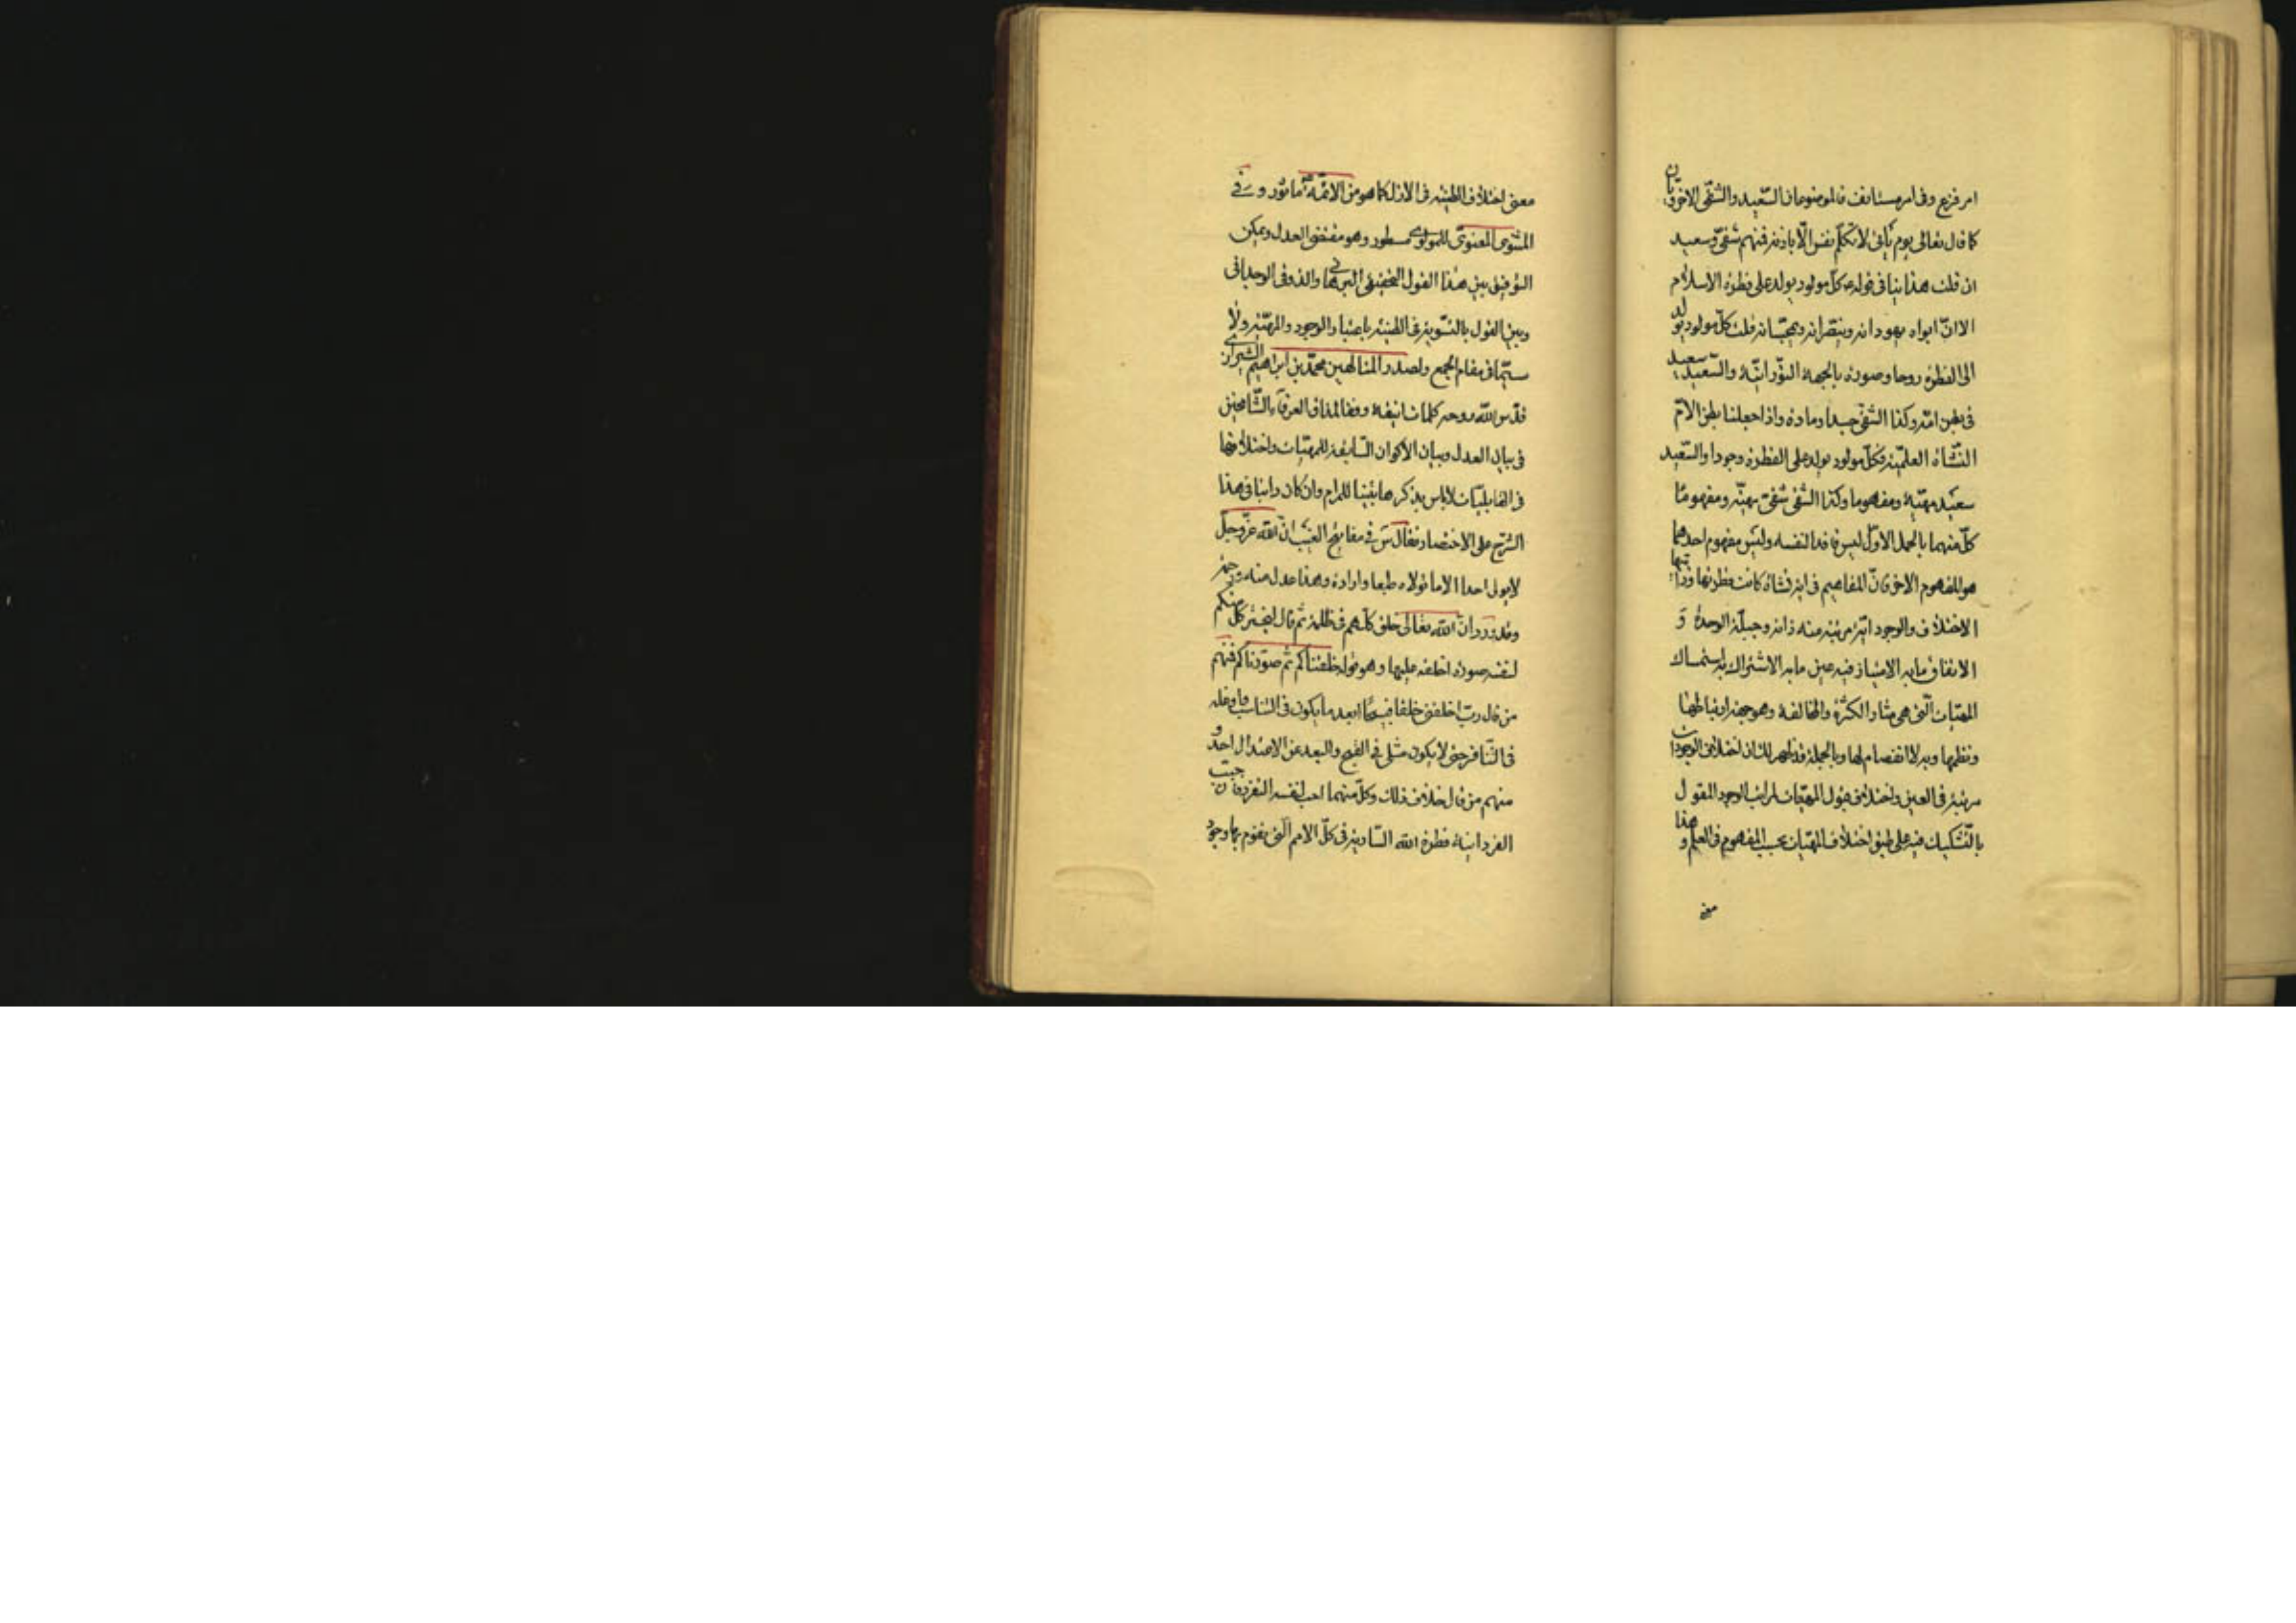 امر فزيع وفى امر مستانف فالموضوعان السّعيد والشّقى الاخرويان
كما قال تعالى يوم يأتى لا تكلّم نفس الّا باذنه فمنهم شقىّ وسعيد
ان قلت هذا ينافى قوله ص كلّ مولود يولد على فطرة الاسلام
الا انّ ابواه يهودانه وينصّرانه ويمجّسانه قلت كلّ مولود يولد
الى الفطرة روحا وصورة بالجهة النّورانيّة والسّعيد سعيد
فى بطن امّه وكذا الشّقى جسدا ومادة واذا جعلنا بطن الامّ
النّشأة العلميّة فكلّ مولود يولد على الفطرة وجودا والسّعيد
سعيد مهيّة ومفهوما وكذا الشّقى شقىّ مهيّة ومفهومًا
كلّ منهما بالحمل الاوّل ليس فاقدا لنفسه وليس مفهوم احدهما
هو المفهوم الاخر فانّ المفاهيم فى اية نشأة كانت فطرتها وذاتيها
الاختلاف والوجود ايّة مرتبة منه ذاته وجبلّته الوحدة و
الاتفاق فما به الامتياز فيه عين ما به الاشتراك به استمساك
المهيّات الّتى هى مثار الكثرة والمخالفة وهو جهة ارتباطها
ونظمها وبه لا انفصام لها وبالجملة قد ظهر لك ان اختلاف الوجودات
مرتبة فى العين واختلاف قبول المهيّات لمراتب الوجود المقول
بالتّشكيك فيه على طبق اختلاف المهيّات بحسب المفهوم فى العلم وهذا
معنى
معنى اختلاف الطينة فى الازل كما هو من الائمّة ع مأثور و فى
المثنوى المعنوىّ للمولوى مسطور وهو مقتضى العدل ويمكن
التّوفيق بين هذا القول التحقيقى البرهانى والذوقى الوجدانى
وبين القول بالتّسوية فى الطينة باعتبار الوجود والمهيّة ولا
سيّما فى مقام الجمع ولصدر المتالهين محمّد بن ابراهيم الشيرازى
قدّس اللّه روحه كلمات انيقة وفقا لمذاق العرفآء الشّامخين
فى بيان العدل وبيان الاكوان السّابقة للمهيّات واختلافها
فى القابليّات لا باس بذكرها تبيينا للمرام وان كان دابنا فى هذا
الشّرح على الاختصار فقال س فى مفاتيح الغيب انّ اللّه عزّ وجلّ
لا يولى احدا الا ما تولاه طبعا وارادة وهذا عدل منه ورحمة
وقد ورد انّ اللّه تعالى خلق كلّهم فى ظلمة ثمّ قال ليختر كلّ منكم
لنفسه صورة اخلقه عليها وهو قوله خلقناكم ثمّ صوّرناكم فمنهم
من قال ربّ اخلقنى خلقا قبيحًا ابعد ما يكون فى التناسب واوغله
فى التّنافر حتى لا يكون مثلى فى القبح والبعد عن الاعتدال احد و
منهم من قال خلاف ذلك وكلّ منهما احب لنفسه التفرد فانّ حبّ
الفردانيّة فطرة اللّه السّارية فى كلّ الامم الّتى يقوم بها وجود